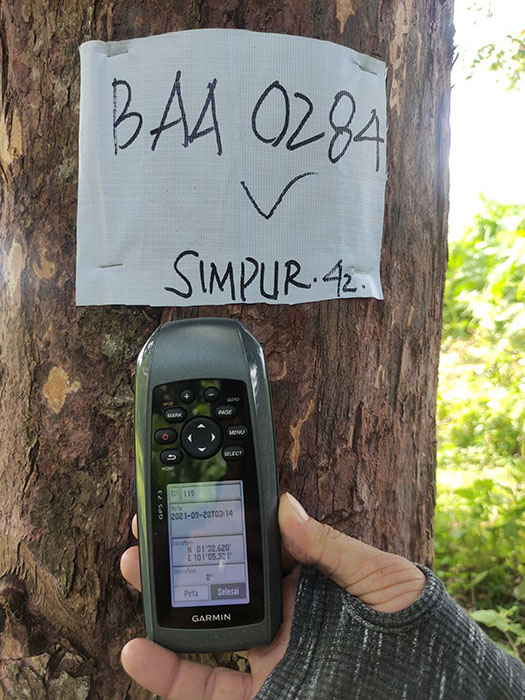 BAA 0284
✓
SIMPUR. 42.
MOB
GOTO
MARK
PAGE
MENU
SELECT
HOME
GPS 73
119
Note
2021-09-28T03:14
Location
N 01°32.620'
E 101°05.321'
Peta
Selesai
GARMIN